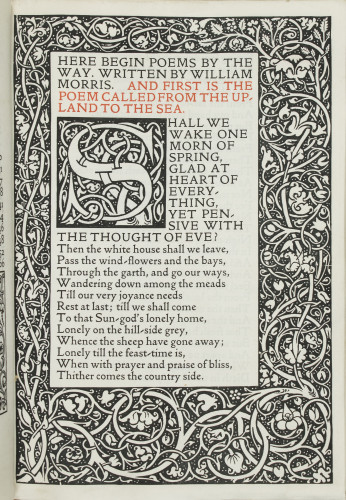 HERE BEGIN POEMS BY THE
WAY. WRITTEN BY WILLIAM
MORRIS. AND FIRST IS THE
POEM CALLED FROM THE UP-
LAND TO THE SEA.
SHALL WE
WAKE ONE
MORN OF
SPRING,
GLAD AT
HEART OF
EVERY-
THING,
YET PEN-
SIVE WITH
THE THOUGHT OF EVE?
Then the white house shall we leave,
Pass the wind-flowers and the bays,
Through the garth, and go our ways,
Wandering down among the meads
Till our very joyance needs
Rest at last; till we shall come
To that Sun-god's lonely home,
Lonely on the hill-side grey,
Whence the sheep have gone away;
Lonely till the feast-time is,
When with prayer and praise of bliss,
Thither comes the country side.